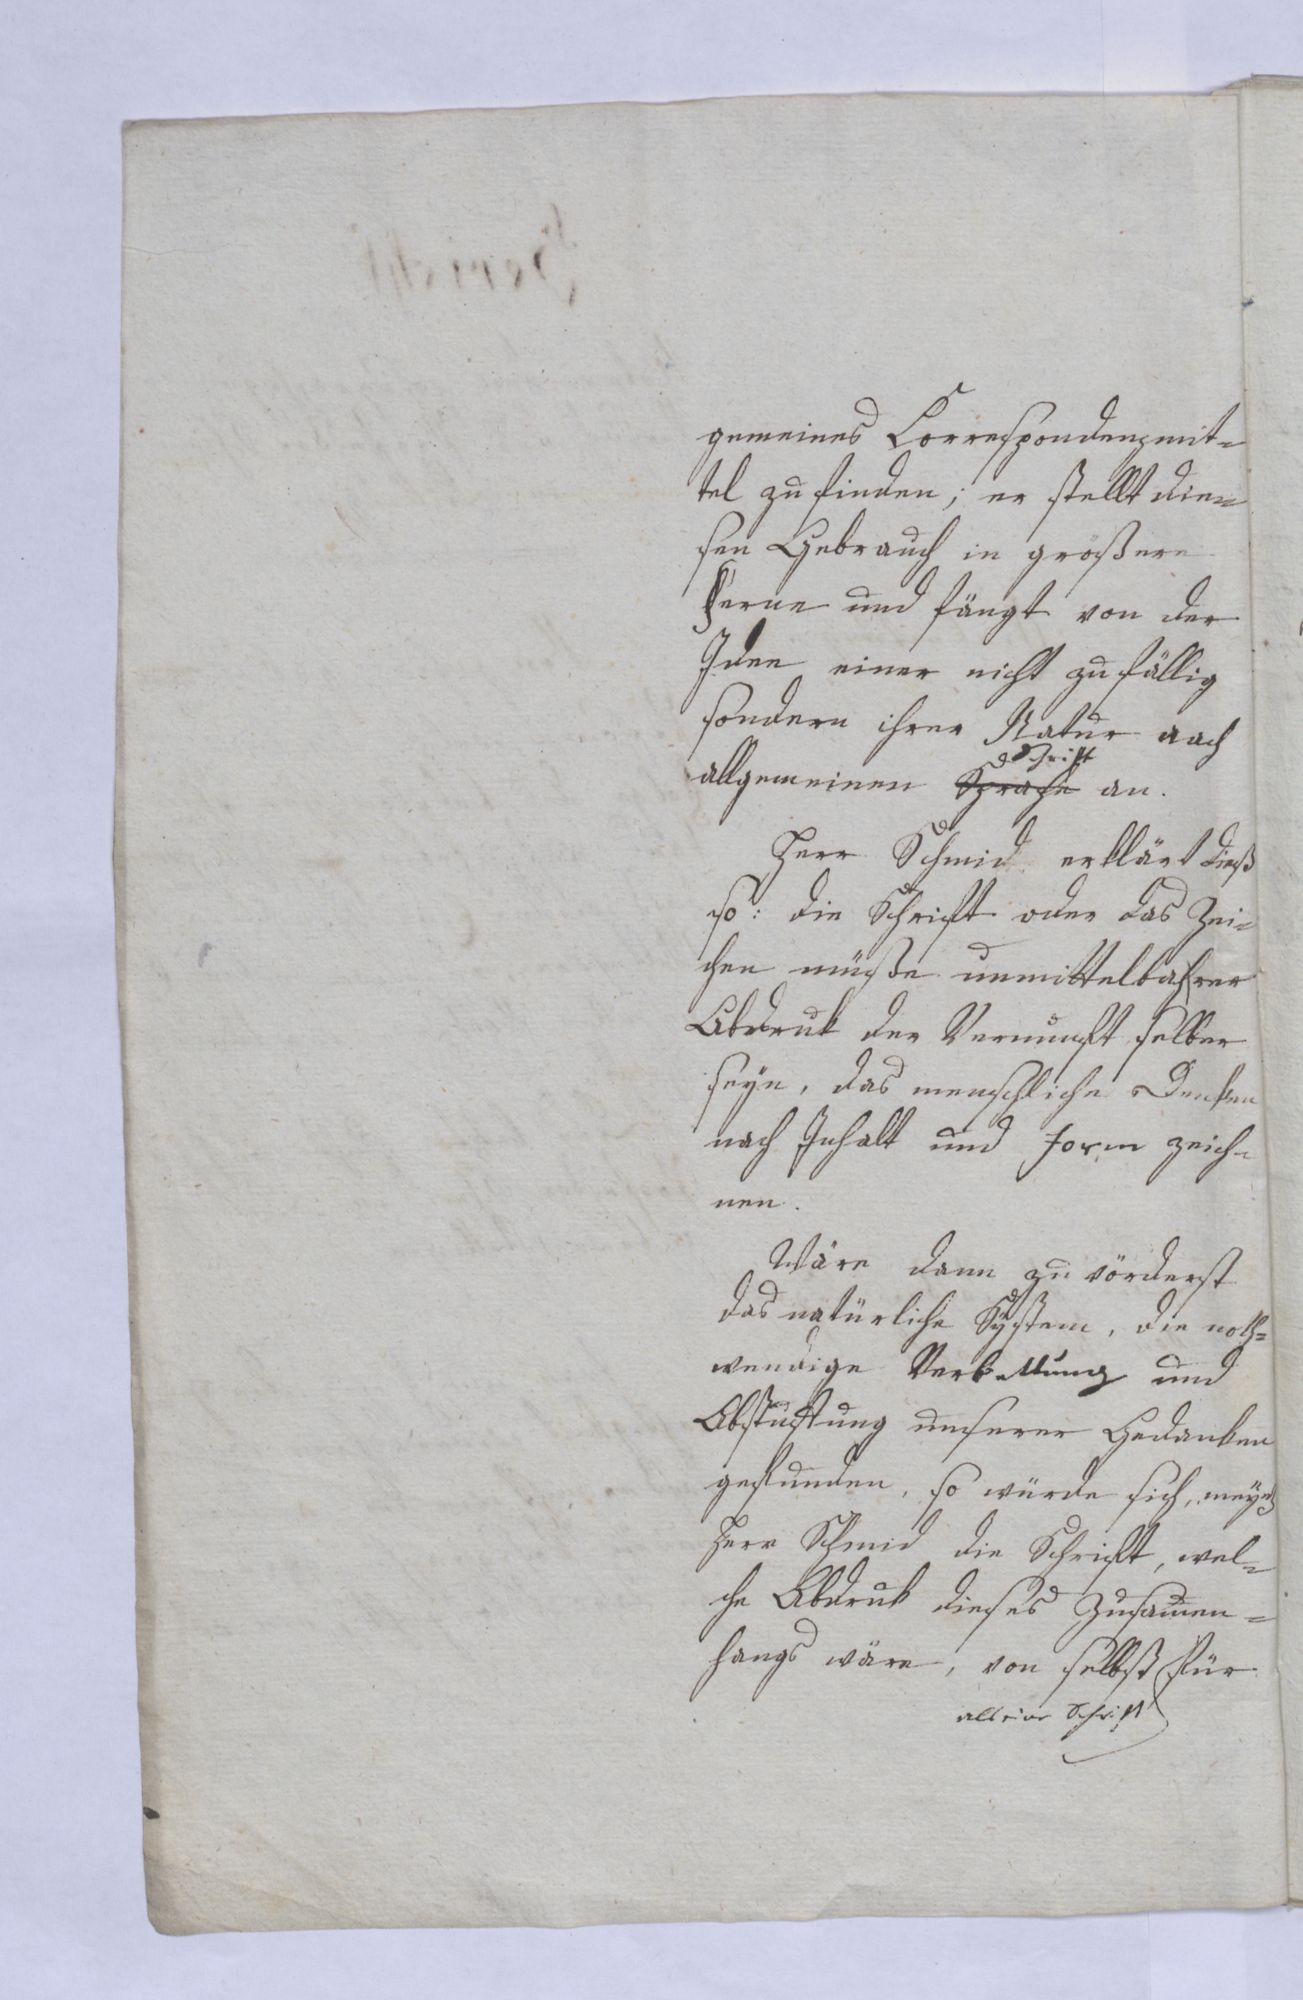 gemeines Correspondenzmit-
tel zu finden; er stellt die-
sen Gebrauch in größere
Ferne und fängt von der
Idee einer nicht zufällig
sondern ihrer Natur nach
Schrift
allgemeinen Sprache an.
Herr Schmid erklärt dieß
so: die Schrift oder das Zei-
chen müße unmittelbahrer
Abdruk der Vernunft selber
seyn, das menschliche Denken
nach Inhalt und Form zeich-
nen.
Wäre dann zu vörderst
das natürliche System, die noth-
wendige Verkettung und
Abstufung unserer Gedanken
gefunden, so würde sich, meynt
Herr Schmid die Schrift, wel-
che Abdruk dieses Zusamen-
hangs wäre, von selbst für
als eine Schrift